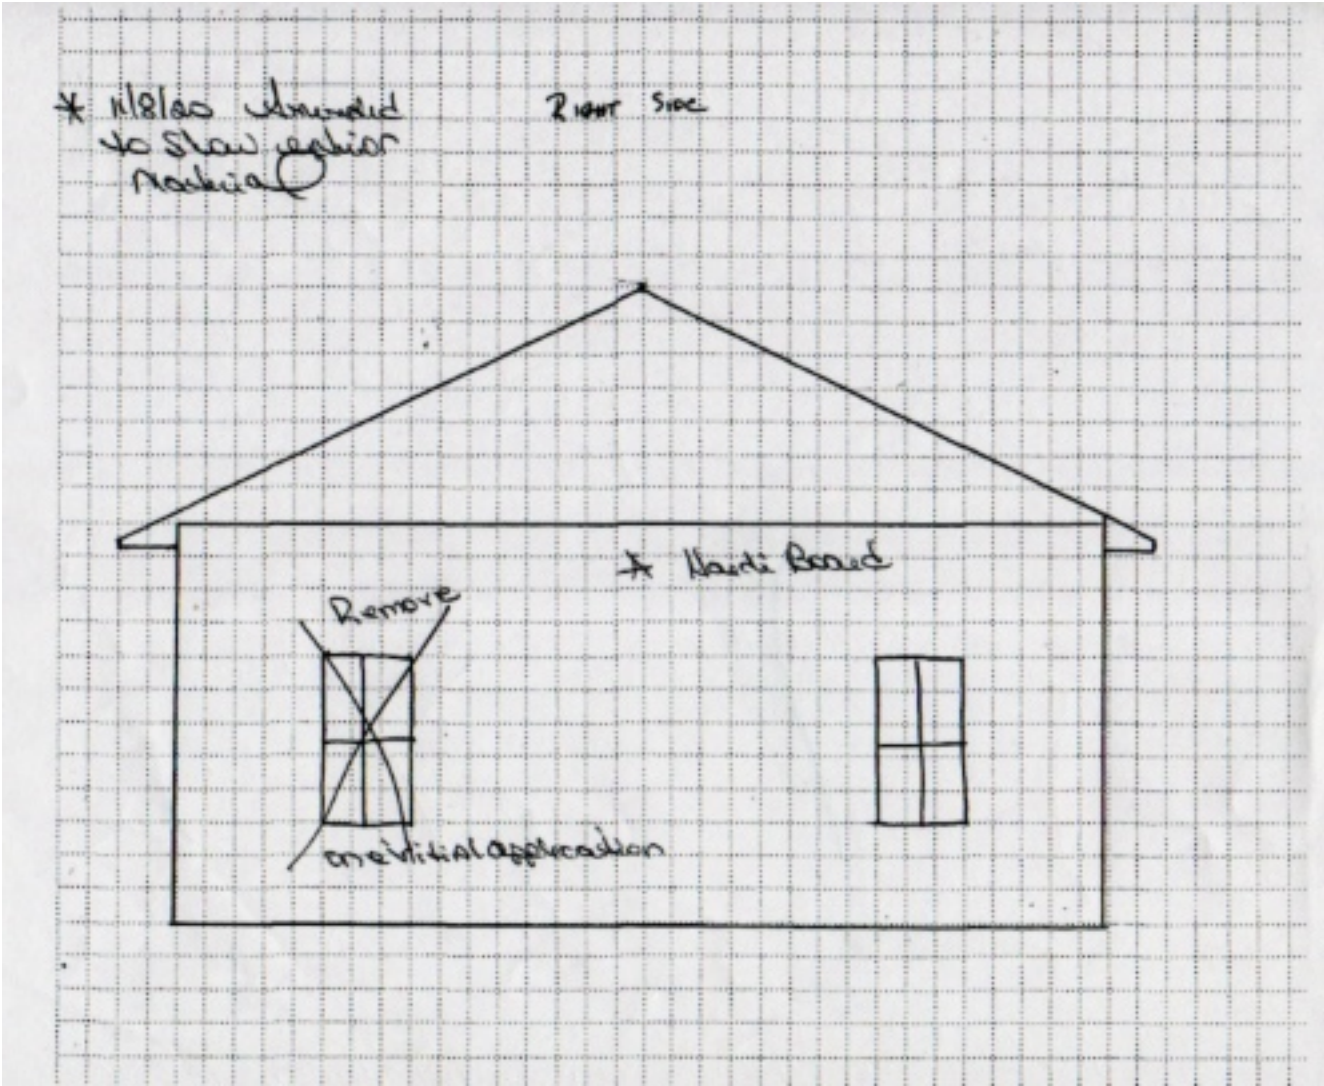 * 11/8/20 Amended
to Show exterior
Material
Right Side
* Hardi Board
Remove
on initial application